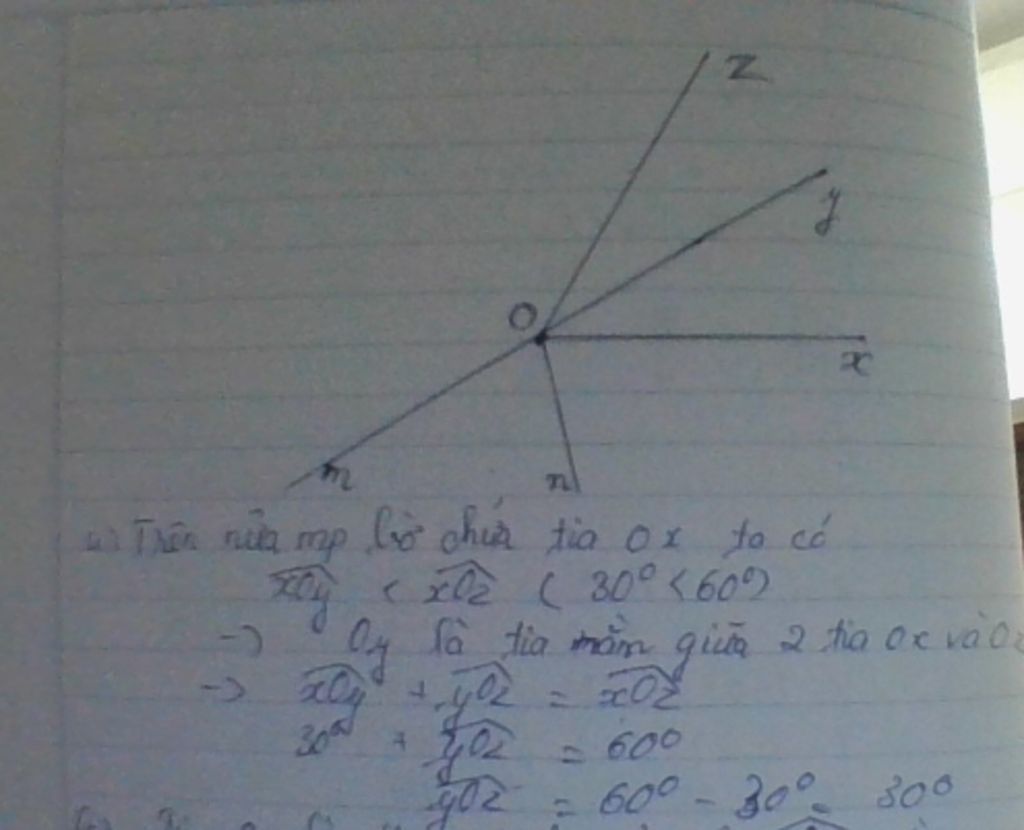 z
y
O
x
m
n
a) Trên nửa mp bờ chứa tia Ox ta có
xOy < xOz ( 30° < 60°)
-> Oy là tia nằm giữa 2 tia Ox và Oz
-> xOy + yOz = xOz
30° + yOz = 60°
yOz = 60° - 30° = 30°